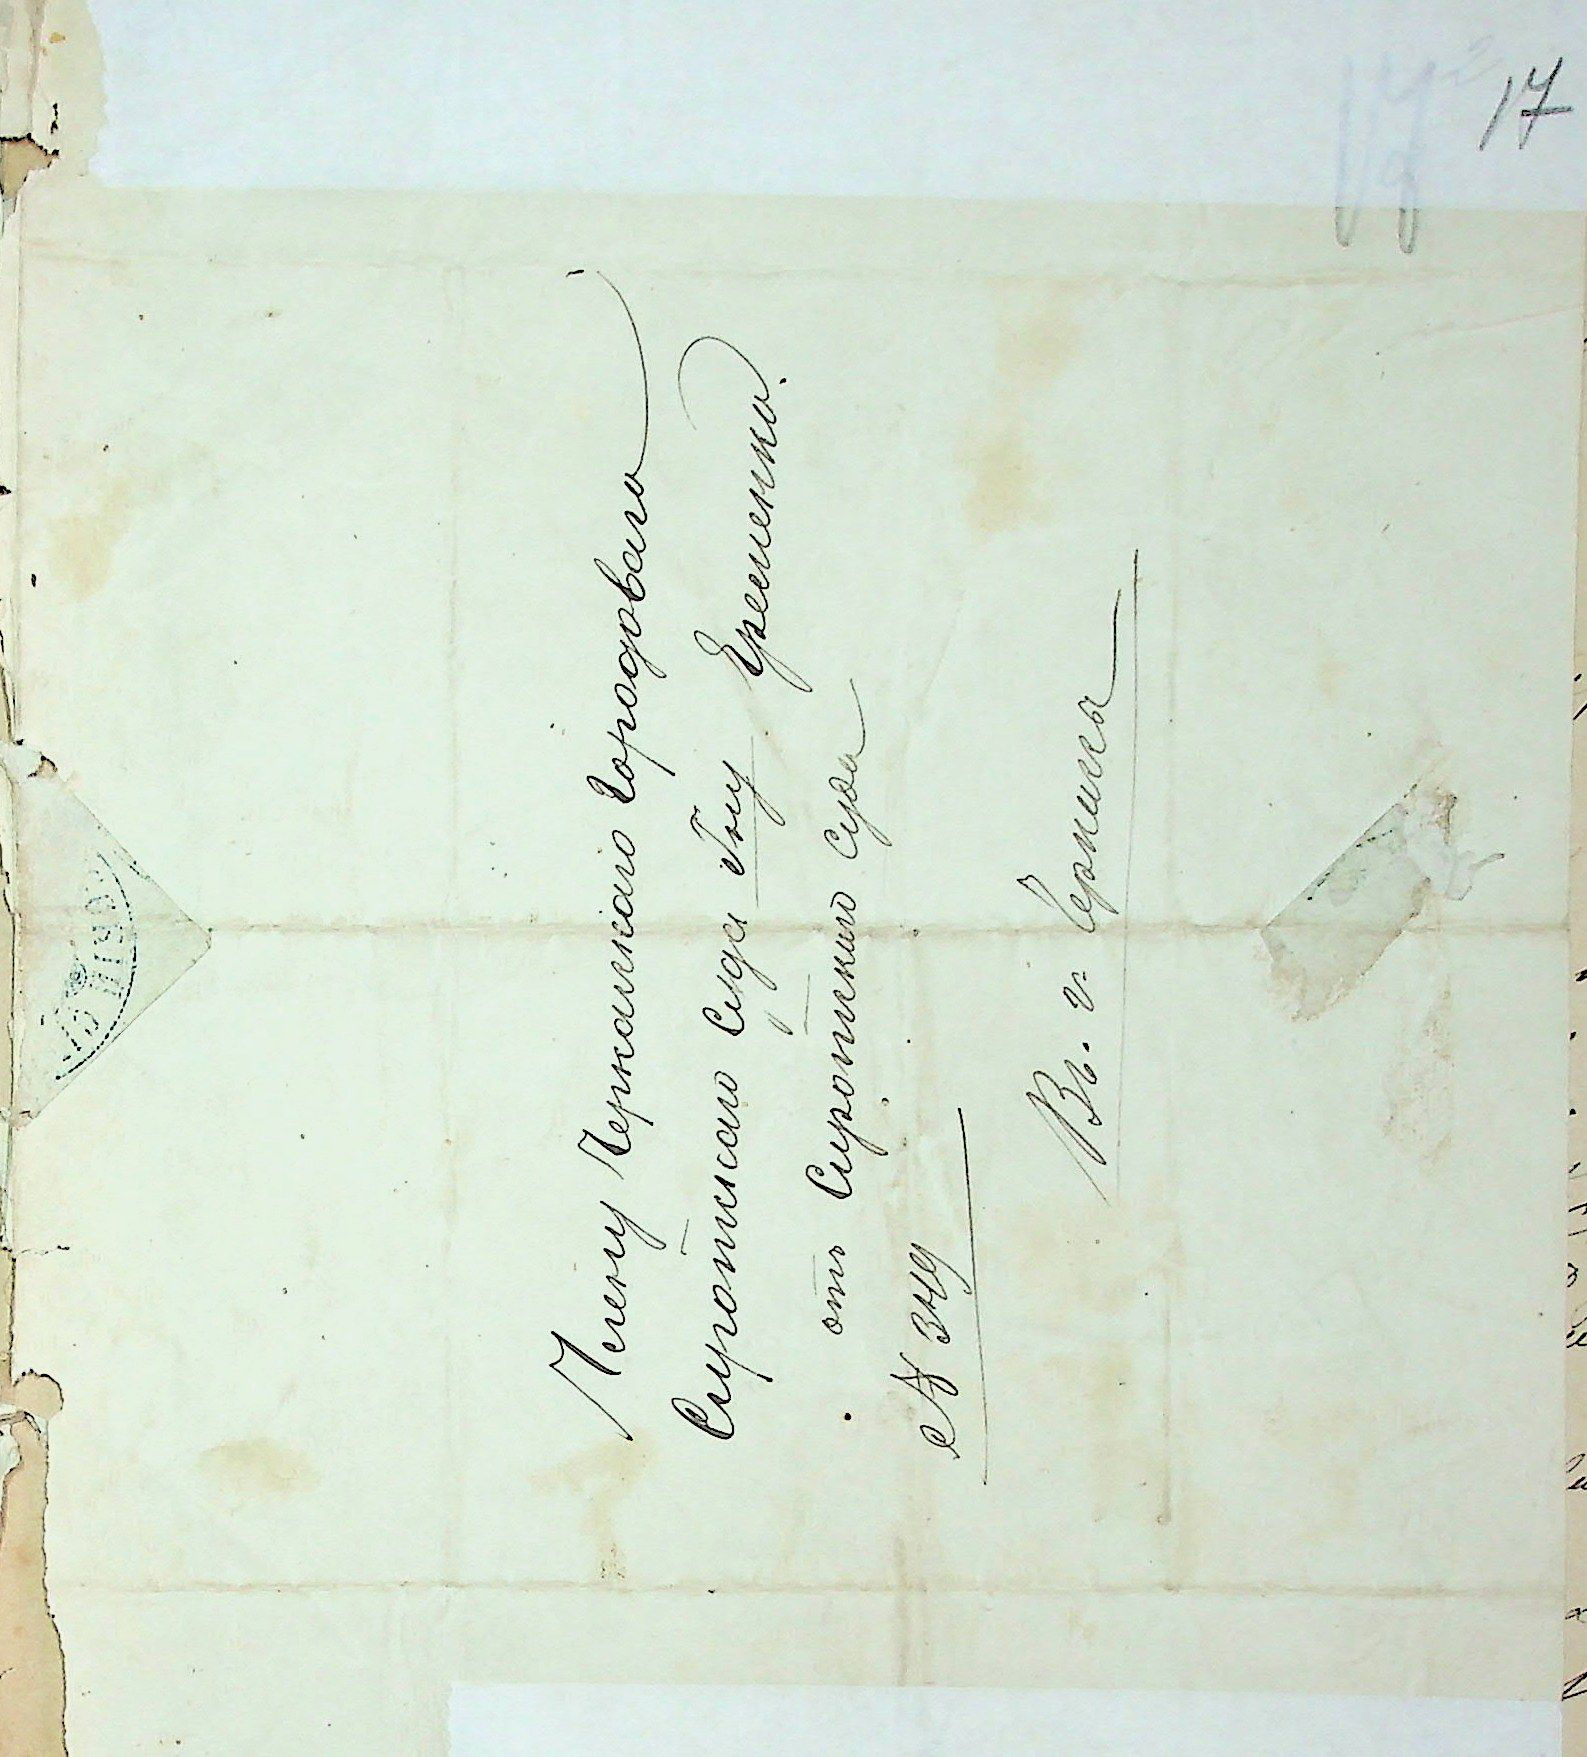 17
Члену Черкаскаго Городоваго
Сиротскаго Суда Гну Яременко.
отъ Сиротскаго Суда
№ 349
Въ. г. Черкасы